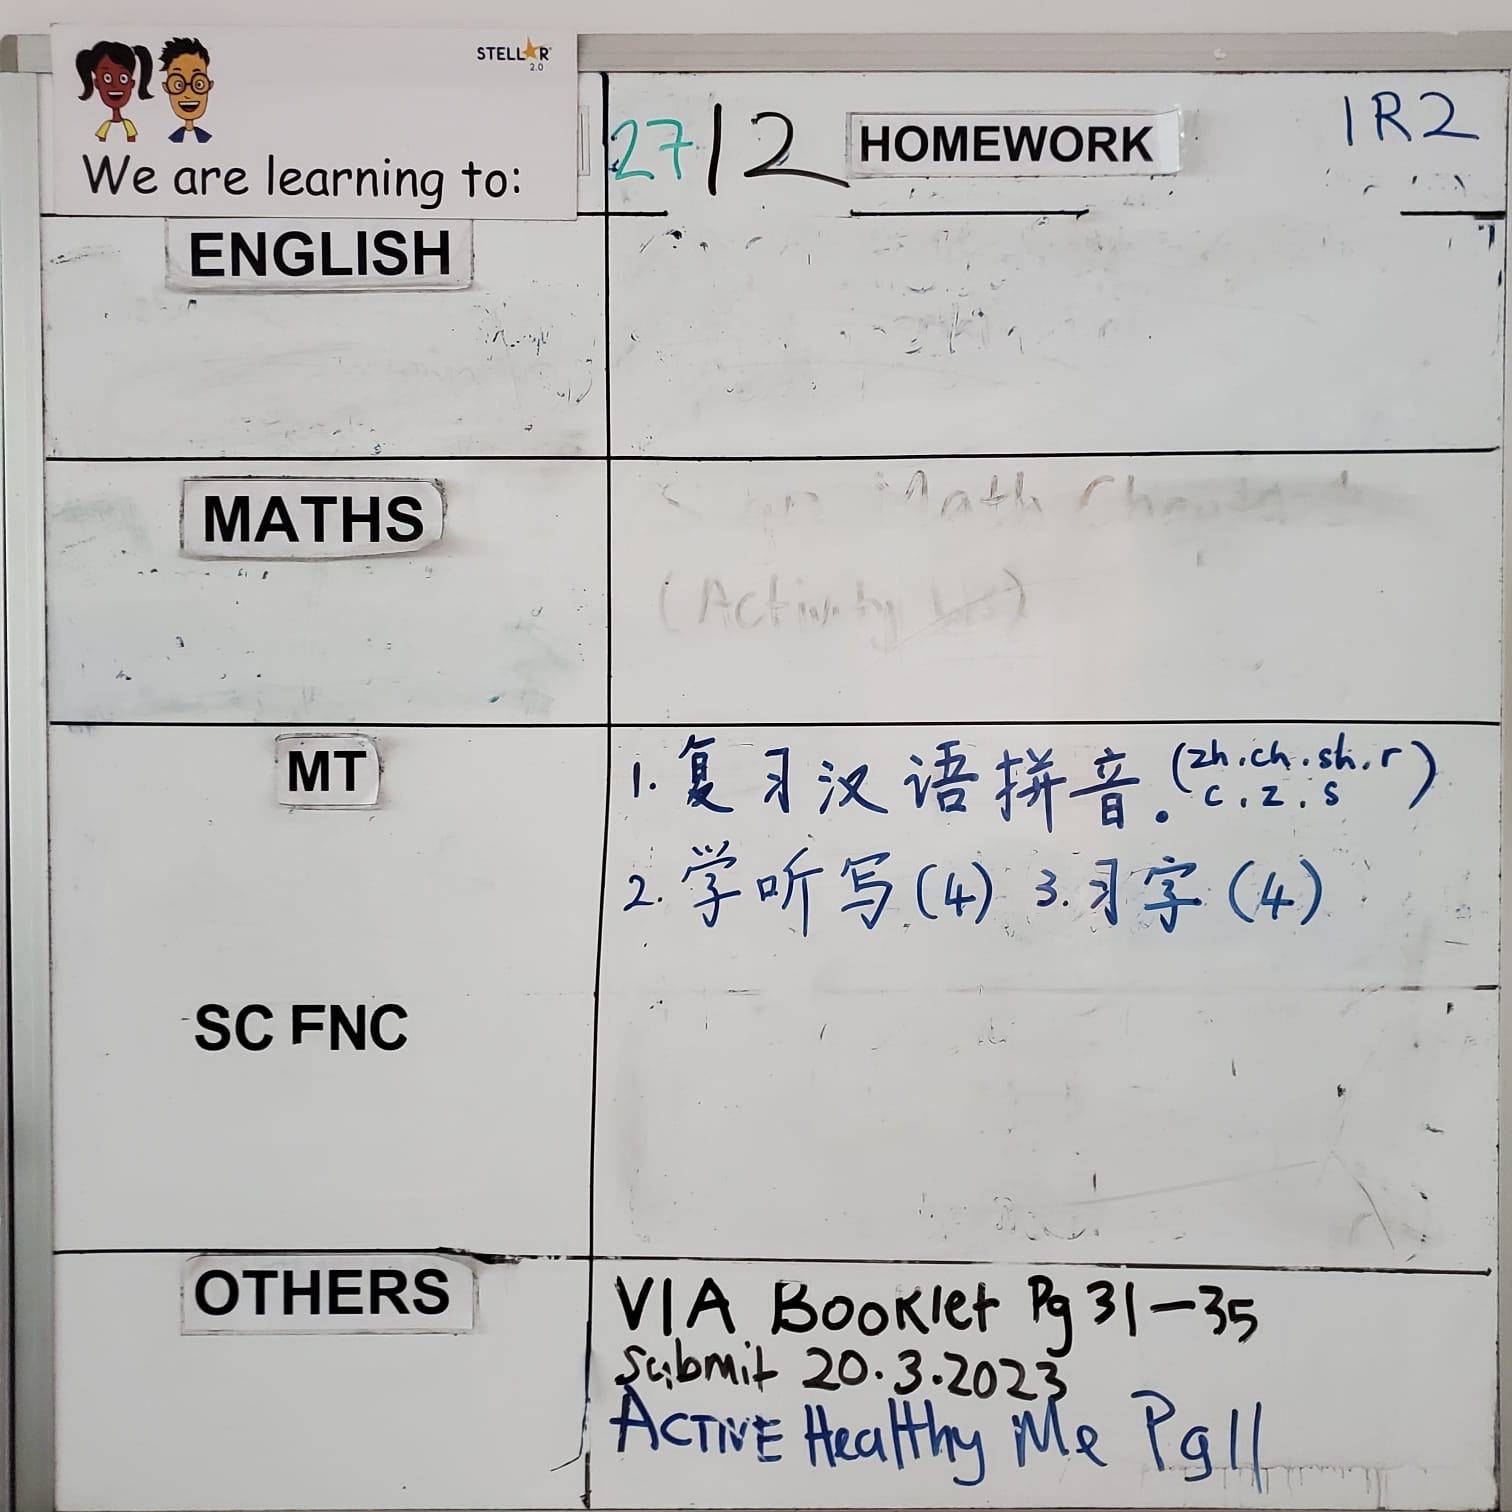 STELLAR 2.0
We are learning to:
27/2 HOMEWORK 1R2
ENGLISH
MATHS
Sign Math
(Activity
MT
1. 复习汉语拼音. (zh.ch.sh.r
c.z.s)
2. 学听写(4) 3. 习字(4)
SC ENC
OTHERS
VIA Booklet Pg 31-35
Submit 20.3.2023
ACTIVE Healthy Me Pg 11